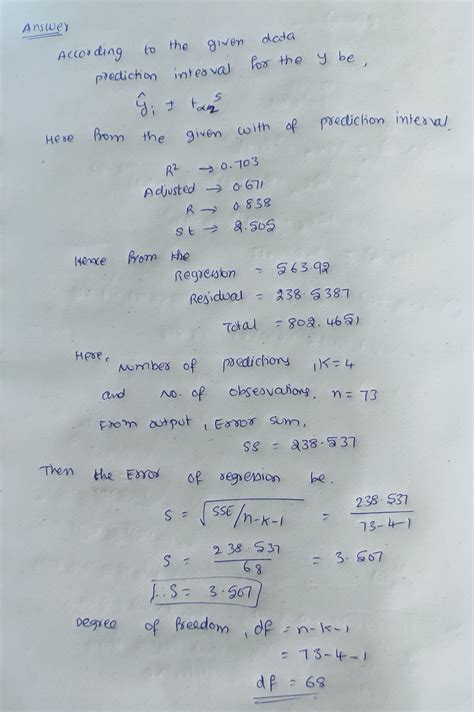 Answer
According to the given data
prediction interval for the y be,
ŷi ± tα/2 s
Here from the given with of prediction interval.
R² → 0.703
Adjusted → 0.671
R → 0.838
St → 2.505
Hence from the
Regression = 563.92
Residual = 238.5387
Total = 802.4651
Here, number of predictions, K=4
and no. of observations, n=73
From output, Error sum,
SS = 238.537
Then the Error of regression be.
S = √SSE/n-k-1 = 238.537/73-4-1
S = 238.537/68 = 3.507
∴ S = 3.507
Degree of freedom, df = n-k-1
= 73-4-1
df = 68